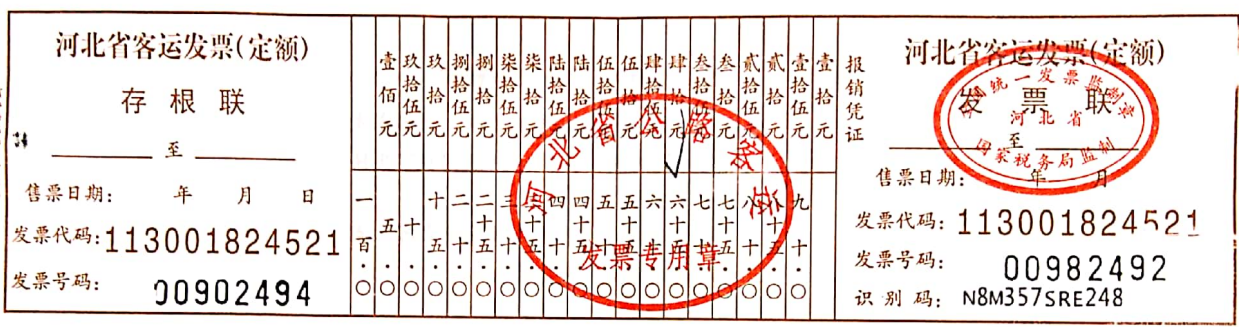 河北省客运发票(定额)
存根联
至
售票日期: 年 月 日
发票代码:113001824521
发票号码: 00902494
壹佰元
玖拾伍元
玖拾元
捌拾伍元
捌拾元
柒拾伍元
柒拾元
陆拾伍元
陆拾元
伍拾伍元
伍拾元
肆拾伍元
肆拾元
叁拾伍元
叁拾元
贰拾伍元
贰拾元
壹拾伍元
壹拾元
一百.○
五.○
十.○
十五.○
二十.○
二十五.○
三十.○
三十五.○
四十.○
四十五.○
五十.○
五十五.○
六十.○
六十五.○
七十.○
七十五.○
八十.○
八十五.○
九十.○
河北省公路客运
发票专用章
报销凭证
河北省客运发票(定额)
发票联
至
全国统一发票监制章
河北省
国家税务局监制
售票日期: 年 月
发票代码:113001824521
发票号码: 00982492
识别码: N8M357SRE248